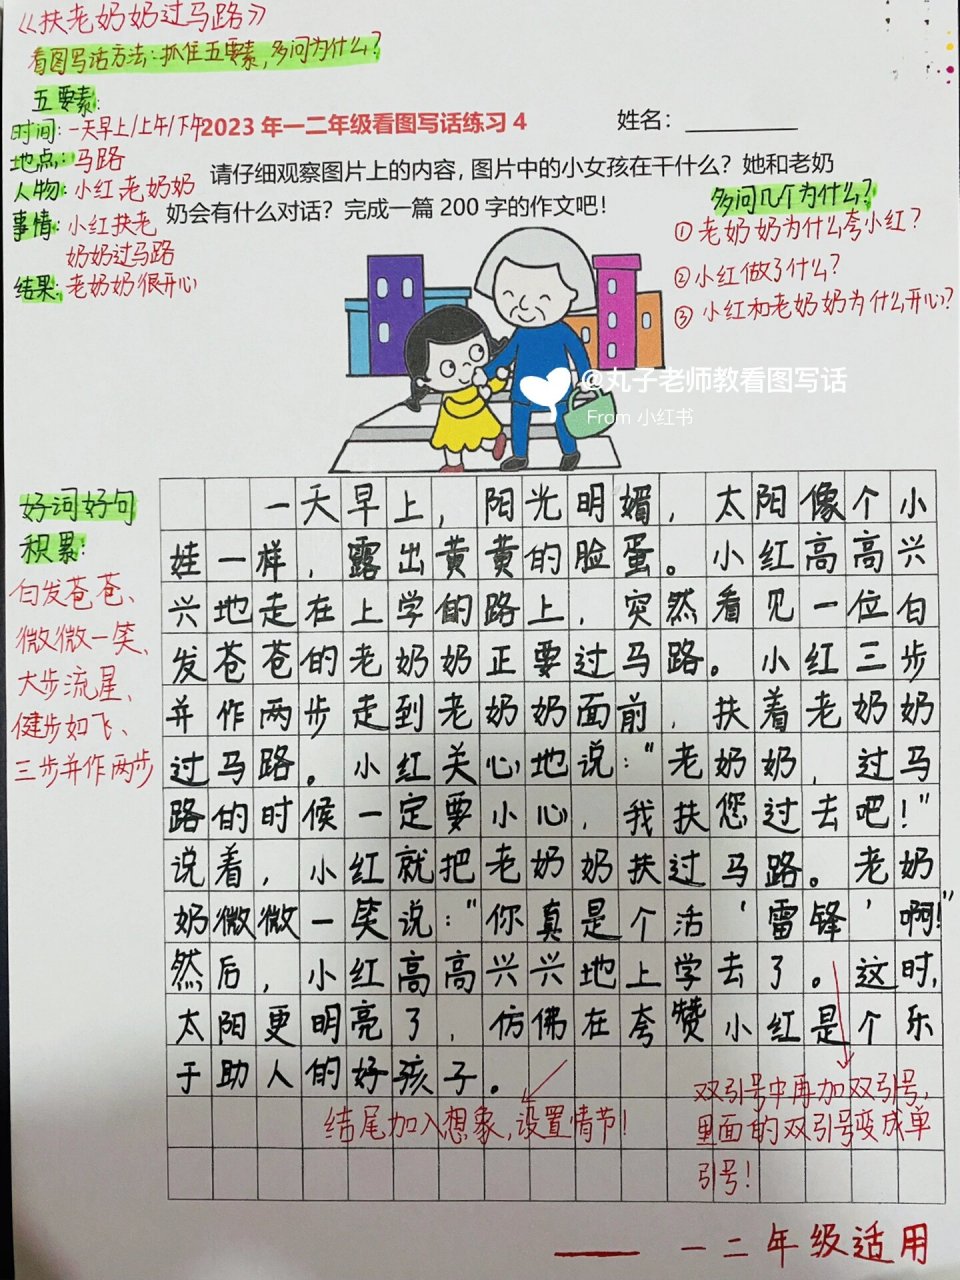 《扶老奶奶过马路》
看图写话方法:抓住五要素,多问为什么?
五要素:
时间:一天早上/上午/下午
地点:马路
人物:小红 老奶奶
事情:小红扶老
奶奶过马路
结果:老奶奶很开心
2023年一二年级看图写话练习4
姓名:
请仔细观察图片上的内容,图片中的小女孩在干什么?她和老奶
奶会有什么对话?完成一篇200字的作文吧!
多问几个为什么?
①老奶奶为什么夸小红?
②小红做了什么?
③小红和老奶奶为什么开心?
@丸子老师教看图写话
From 小红书
好词好句
积累:
白发苍苍、
微微一笑、
大步流星、
健步如飞、
三步并作两步
一天早上,阳光明媚,太阳像个小
娃一样,露出黄黄的脸蛋。小红高高兴
兴地走在上学的路上,突然看见一位白
发苍苍的老奶奶正要过马路。小红三步
并作两步走到老奶奶面前,扶着老奶奶
过马路。小红关心地说:"老奶奶,过马
路的时候一定要小心,我扶您过去吧!"
说着,小红就把老奶奶扶过马路。老奶
奶微微一笑说:"你真是个活'雷锋'啊!"
然后,小红高高兴兴地上学去了。这时,
太阳更明亮了,仿佛在夸赞小红是个乐
于助人的好孩子。
结尾加入想象,设置情节!
双引号中再加双引号,
里面的双引号变成单
引号!
——一二年级适用